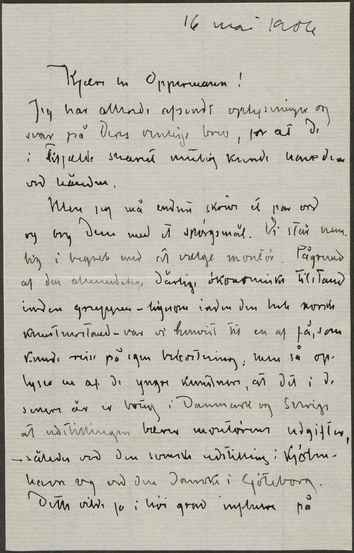 16 mai 1906
Kjære hr Oppermann!
Jeg har allerede afsendt oplysninger og
svar på Deres venlige brev, for at De
i tilfælde snarest mulig kunde have dem
ved hånden.
Men jeg må endnu skrive et par ord
og bry Dem med et spørgsmål. Vi står nem-
lig i begreb med at vælge montør. På grund
af den almindelig dårlige økonomiske tilstand
inden gruppen – ligesom inden den hele norske
kunstnerstand – var vi henvist til en af få, som
kunde reise på egen bekostning, men så op-
lyste en af de yngre kunstnere, at det i de
senere år er brug i Danmark og Sverige
at udstillingen bærer montørens udgifter,
– således ved den svenske udstilling i Kjøben-
havn og ved den danske i Göteborg.
Dette vilde jo i høi grad influere på